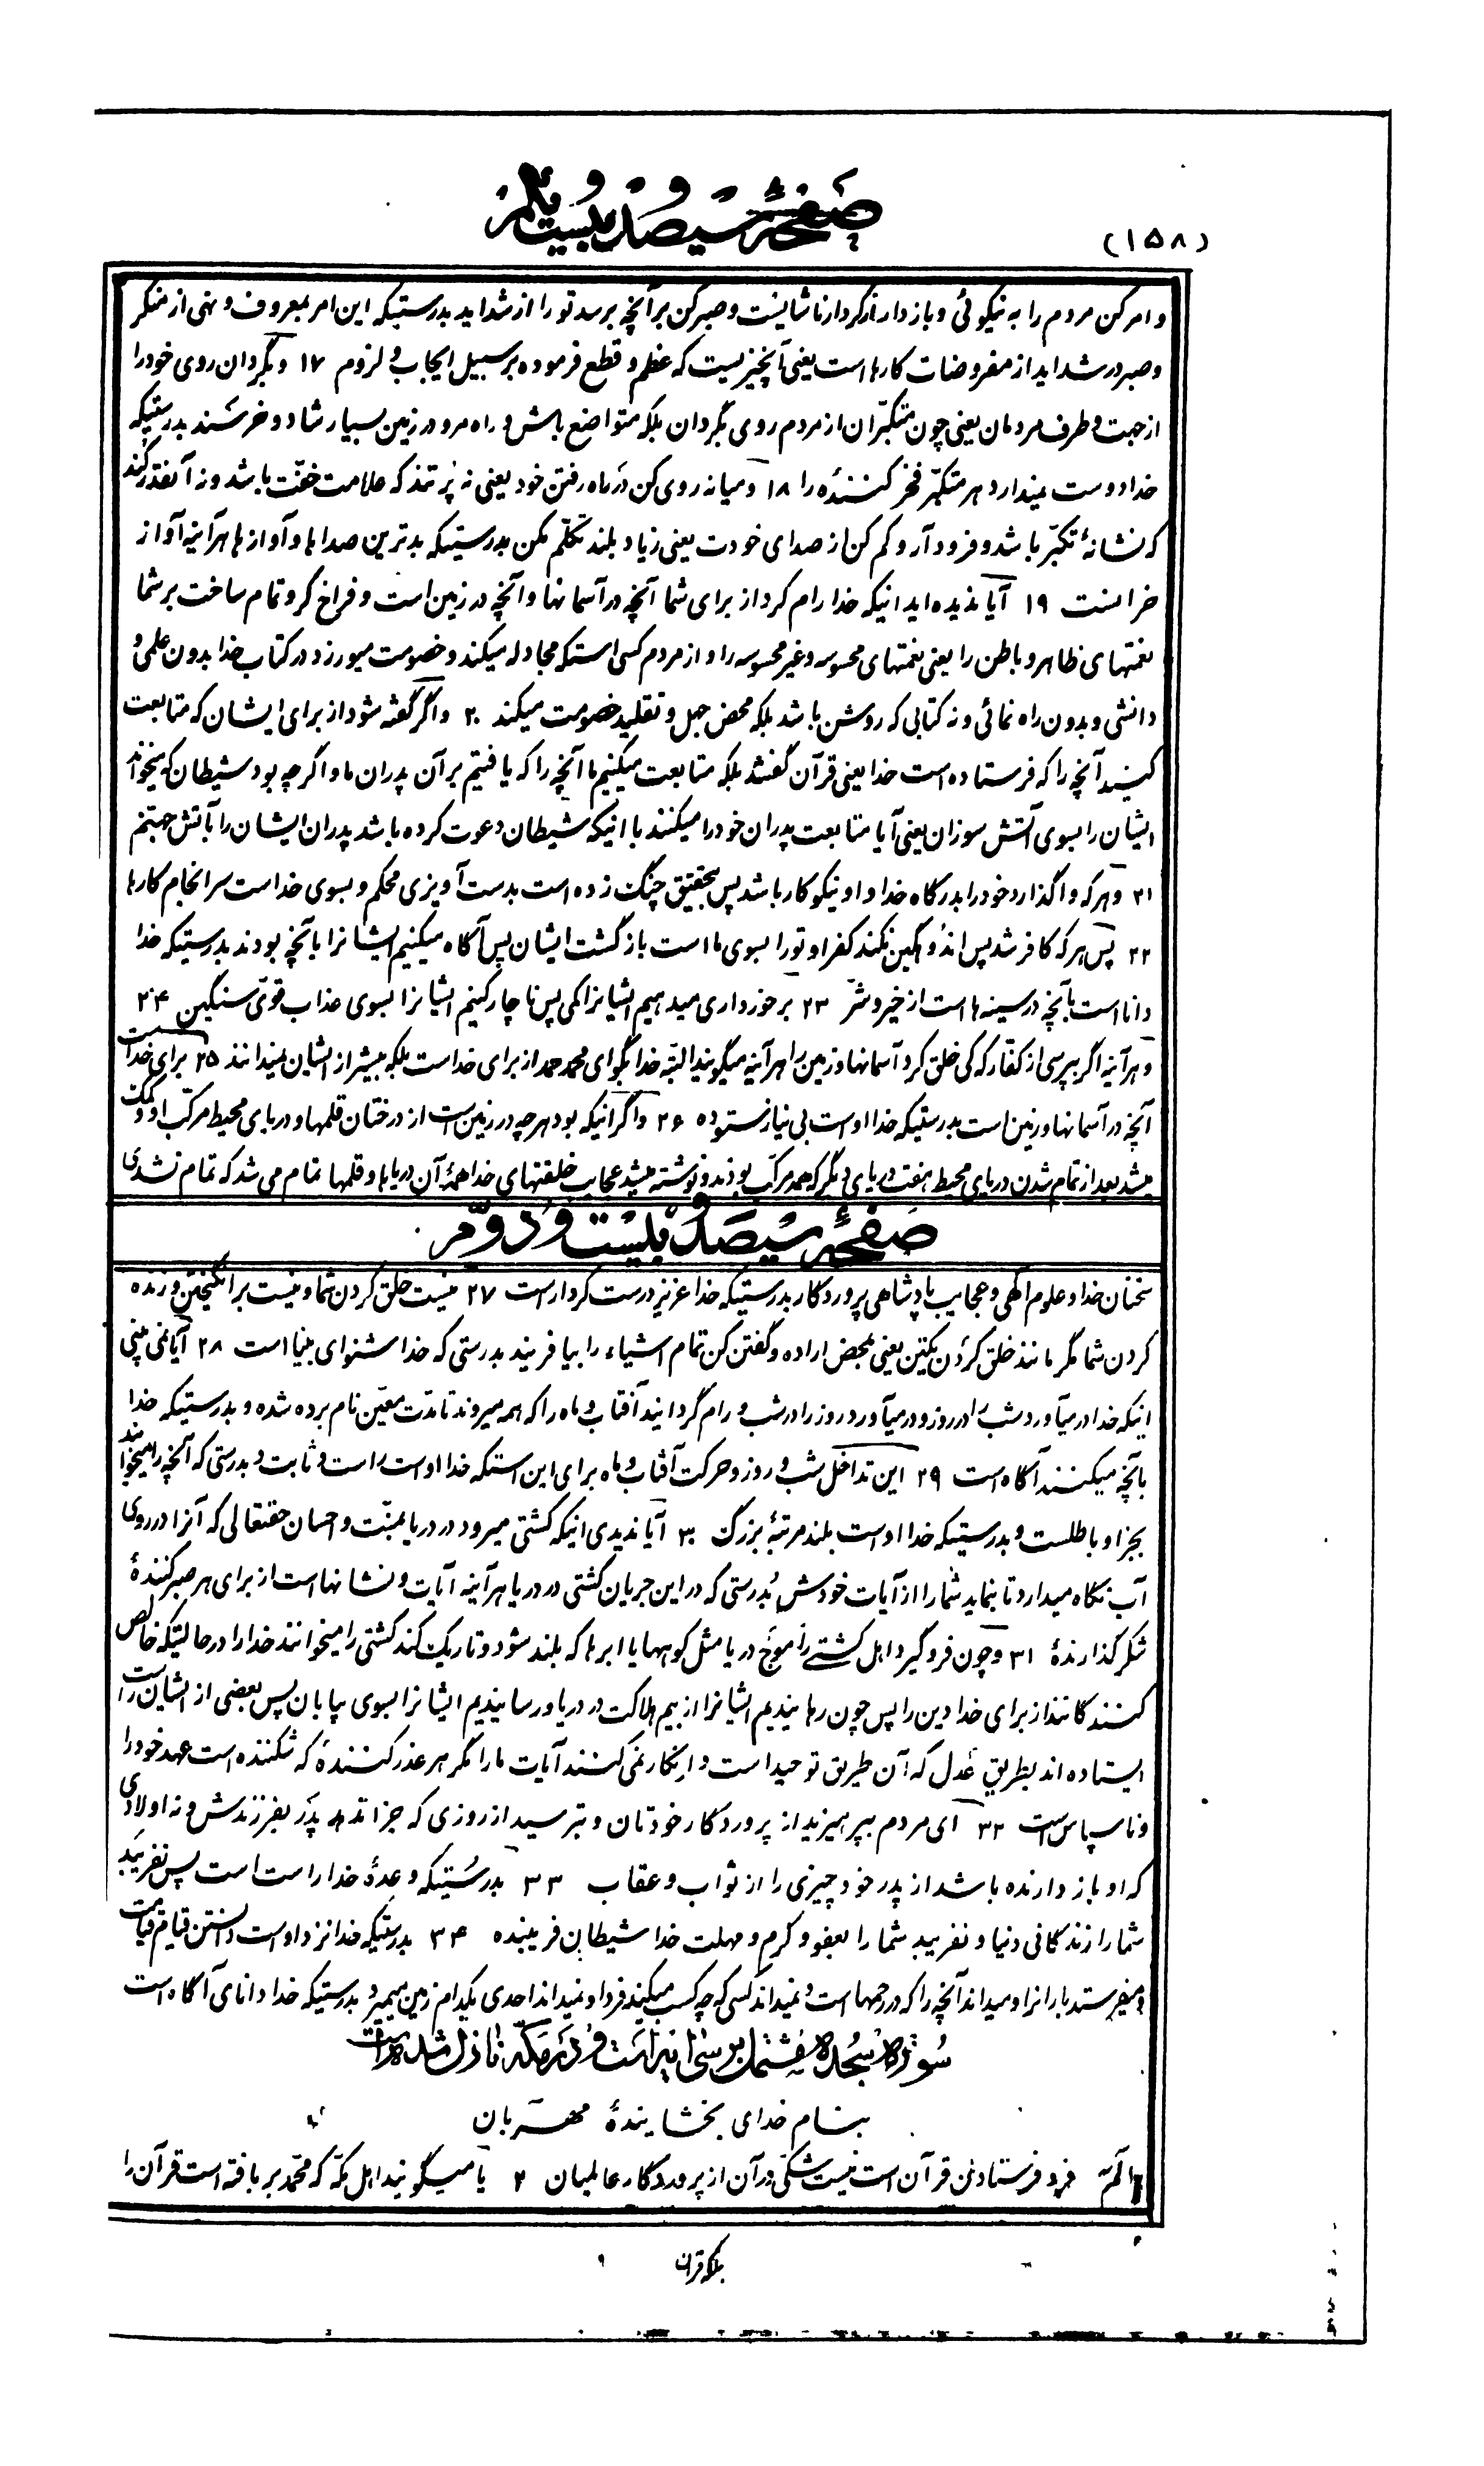 (۱۵۸)
صفحهٔ سیصد و بیست و یکم
و امر کن مردم را به نیکوئی و باز دار از کردار ناشایست و صبر کن بر آنچه برسد تو را از شداید بدرستیکه این امر بمعروف و نهی از منکر
و صبر در شداید از مفروضات کارها است یعنی آنچیزیست که عظم و قطع فرموده بر سبیل ایجاب و لزوم ۱۷ و مگردان روی خود را
از جهت و طرف مردمان یعنی چون متکبّران از مردم روی مگردان بلکه متواضع باش و راه مرو در زمین بسیار شاد و خرسند بدرستیکه
خدا دوست نمیدارد هر متکبّر فخر کنندهٔ را ۱۸ و میانه روی کن در راه رفتن خود یعنی نه پر تند که علامت خفّت باشد و نه آنقدر کند
که نشانهٔ تکبّر باشد و فرود آر و کم کن از صدای خودت یعنی زیاد بلند تکلّم مکن بدرستیکه بدترین صداها و آوازها هرآینه آواز
خر است ۱۹ آیا ندیده‌اید اینکه خدا رام کرد از برای شما آنچه در آسمانها و آنچه در زمین است و فراخ کرد و تمام ساخت بر شما
نعمتهای ظاهر و باطن را یعنی نعمتهای محسوسه و غیر محسوسه را و از مردم کسی استکه مجادله میکند و خصومت میورزد در کتاب خدا بدون علمی و
دانشی و بدون راه نمائی و نه کتابی که روشن باشد بلکه محض جهل و تقلید خصومت میکند ۲۰ و اگر گفته شود از برای ایشان که متابعت
کنید آنچه را که فرستاده است خدا یعنی قرآن گفتند بلکه متابعت میکنیم ما آنچه را که یافتیم بر آن پدران ما و اگرچه بود شیطان که میخواند
ایشان را بسوی آتش سوزان یعنی آیا متابعت پدران خود را میکنند با اینکه شیطان دعوت کرده باشد پدران ایشان را بآتش جهنّم
۲۱ و هر که واگذارد خود را بدرگاه خدا و او نیکوکار باشد پس بتحقیق چنگ زده است بدست آویزی محکم و بسوی خداست سرانجام کارها
۲۲ پس هر که کافر شد پس اندوهگین نکند کفر او تو را بسوی ما است بازگشت ایشان پس آگاه میکنیم ایشانرا بآنچه بودند بدرستیکه خدا
دانا است بآنچه در سینه‌ها است از خیر و شرّ ۲۳ برخورداری میدهیم ایشانرا کمی پس ناچار کنیم ایشانرا بسوی عذاب قوّی سنگین ۲۴
و هرآینه اگر بپرسی از کفّار که کی خلق کرد آسمانها و زمین را هرآینه میگویند البتّه خدا بگو ای محمد حمد از برای خداست بلکه بیشتر از ایشان نمیدانند ۲۵ برای خداست
آنچه در آسمانها و زمین است بدرستیکه خدا اوست بی نیاز ستوده ۲۶ و اگر اینکه بود هر چه در زمین است از درختان قلمها و دریای محیط مرکّب او و کمک
میشد بعد از تمام شدن دریای محیط هفت دریای دیگر که همه مرکّب بودند و نوشته میشد عجایب خلقتهای خدا همهٔ آن دریاها و قلمها تمام می شد که تمام نشدی
صفحهٔ سیصد و بیست و دوّم
سخنان خدا و علوم الهی و عجایب پادشاهی پروردگار بدرستیکه خدا عزیز درست کردار است ۲۷ نیست خلق کردن شما و نیست برانگیختن و زنده
کردن شما مگر مانند خلق کردن یکتن یعنی بمحض اراده و گفتن کن تمام اشیاء را بیافریند بدرستی که خدا شنوای بینا است ۲۸ آیا نمی بینی
اینکه خدا درمیآورد شب را در روز و درمیآورد روز را در شب و رام گردانید آفتاب و ماه را که همه میروند تا مدّت معیّن نام برده شده و بدرستیکه خدا
بآنچه میکنند آگاه است ۲۹ این تداخل شب و روز و حرکت آفتاب و ماه برای این استکه خدا اوست راست و ثابت و بدرستی که آنچه را میخوانند
بجز او باطلست و بدرستیکه خدا اوست بلند مرتبهٔ بزرگ ۳۰ آیا ندیدی اینکه کشتی میرود در دریا بمنّت و احسان حقتعالی که آنرا در روی
آب نگاه میدارد تا بنماید شما را از آیات خودش بدرستی که در این جریان کشتی در دریا هرآینه آیات و نشانها است از برای هر صبر کنندهٔ
شکر گذارندهٔ ۳۱ و چون فرو گیرد اهل کشتی را موج دریا مثل کوهها یا ابرها که بلند شود و تاریک کند کشتی را میخوانند خدا را در حالتیکه خالص
کنندگانند از برای خدا دین را پس چون رهانیدیم ایشانرا از بیم هلاکت در دریا و رسانیدیم ایشانرا بسوی بیابان پس بعضی از ایشان راست
ایستاده اند بطریق عدل که آن طریق توحید است و انکار نمی کنند آیات ما را مگر هر عذر کنندهٔ که شکننده است عهد خود را
و ناسپاس است ۳۲ ای مردم بپرهیزید از پروردگار خودتان و بترسید از روزی که جزا ندهد پدر بفرزندش و نه اولادی
که او باز دارنده باشد از پدر خود چیزی را از ثواب و عقاب ۳۳ بدرستیکه وعدهٔ خدا راست است پس نفریبد
شما را زندگانی دنیا و نفریبد شما را بعفو و کرم و مهلت خدا شیطان فریبنده ۳۴ بدرستیکه خدا نزد اوست دانستن قیام قیامت
و میفرستد بارانرا و میداند آنچه را که در رحمها است و نمیداند کسی که چه کسب میکند فردا و نمیداند احدی بکدام زمین میمیرد بدرستیکه خدا دانای آگاه است
سورهٔ سجده مشتمل بر سی آیه است و در مکّه نازل شده است
بنام خدای بخشایندهٔ مهربان
۱ الٓمٓ فرو فرستادن قرآن است نیست شکّی در آن از پروردگار عالمیان ۲ یا میگویند اهل مکّه که محمّد بر بافته است قرآن را
بلکه قرآن